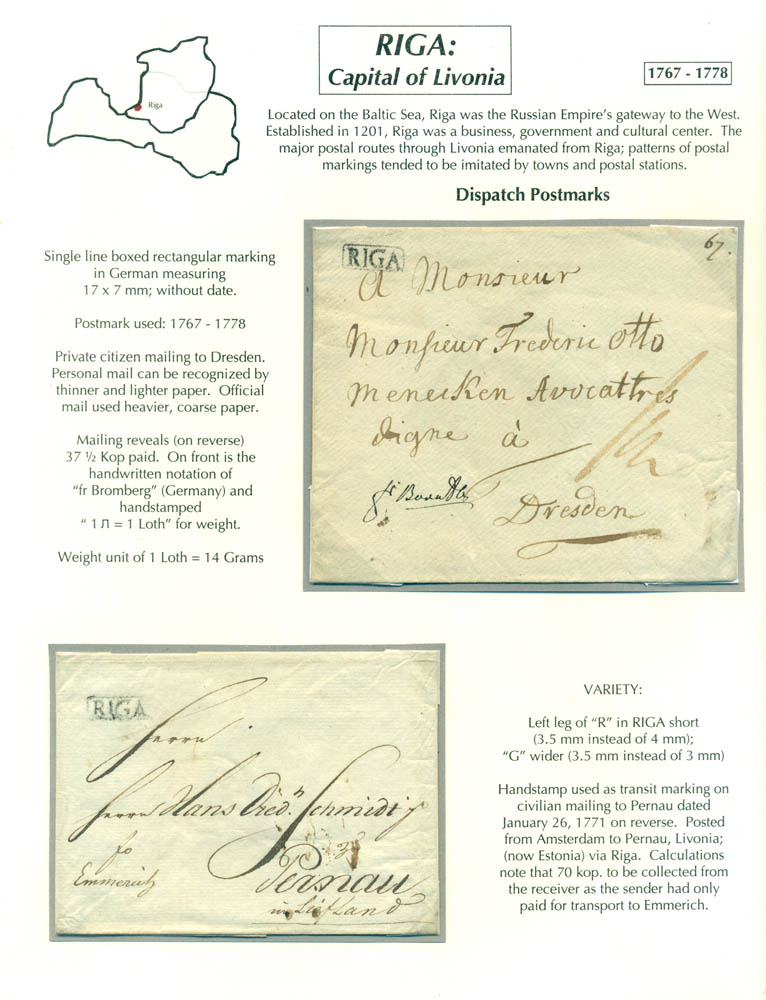 RIGA:
Capital of Livonia
1767 - 1778
Riga
Located on the Baltic Sea, Riga was the Russian Empire's gateway to the West.
Established in 1201, Riga was a business, government and cultural center. The
major postal routes through Livonia emanated from Riga; patterns of postal
markings tended to be imitated by towns and postal stations.
Dispatch Postmarks
Single line boxed rectangular marking
in German measuring
17 x 7 mm; without date.
Postmark used: 1767 - 1778
Private citizen mailing to Dresden.
Personal mail can be recognized by
thinner and lighter paper. Official
mail used heavier, coarse paper.
Mailing reveals (on reverse)
37 ½ Kop paid. On front is the
handwritten notation of
"fr Bromberg" (Germany) and
handstamped
" 1 Л = 1 Loth" for weight.
Weight unit of 1 Loth = 14 Grams
RIGA
67.
A Monsieur
Monsieur Frederic Otto
Menecken Avocattres
digne à
Dresden
RIGA
Herrn
Herrn Hans Died. Schmidt
fo
Emmerich
Pernau
in Liefland
VARIETY:
Left leg of "R" in RIGA short
(3.5 mm instead of 4 mm);
"G" wider (3.5 mm instead of 3 mm)
Handstamp used as transit marking on
civilian mailing to Pernau dated
January 26, 1771 on reverse. Posted
from Amsterdam to Pernau, Livonia;
(now Estonia) via Riga. Calculations
note that 70 kop. to be collected from
the receiver as the sender had only
paid for transport to Emmerich.